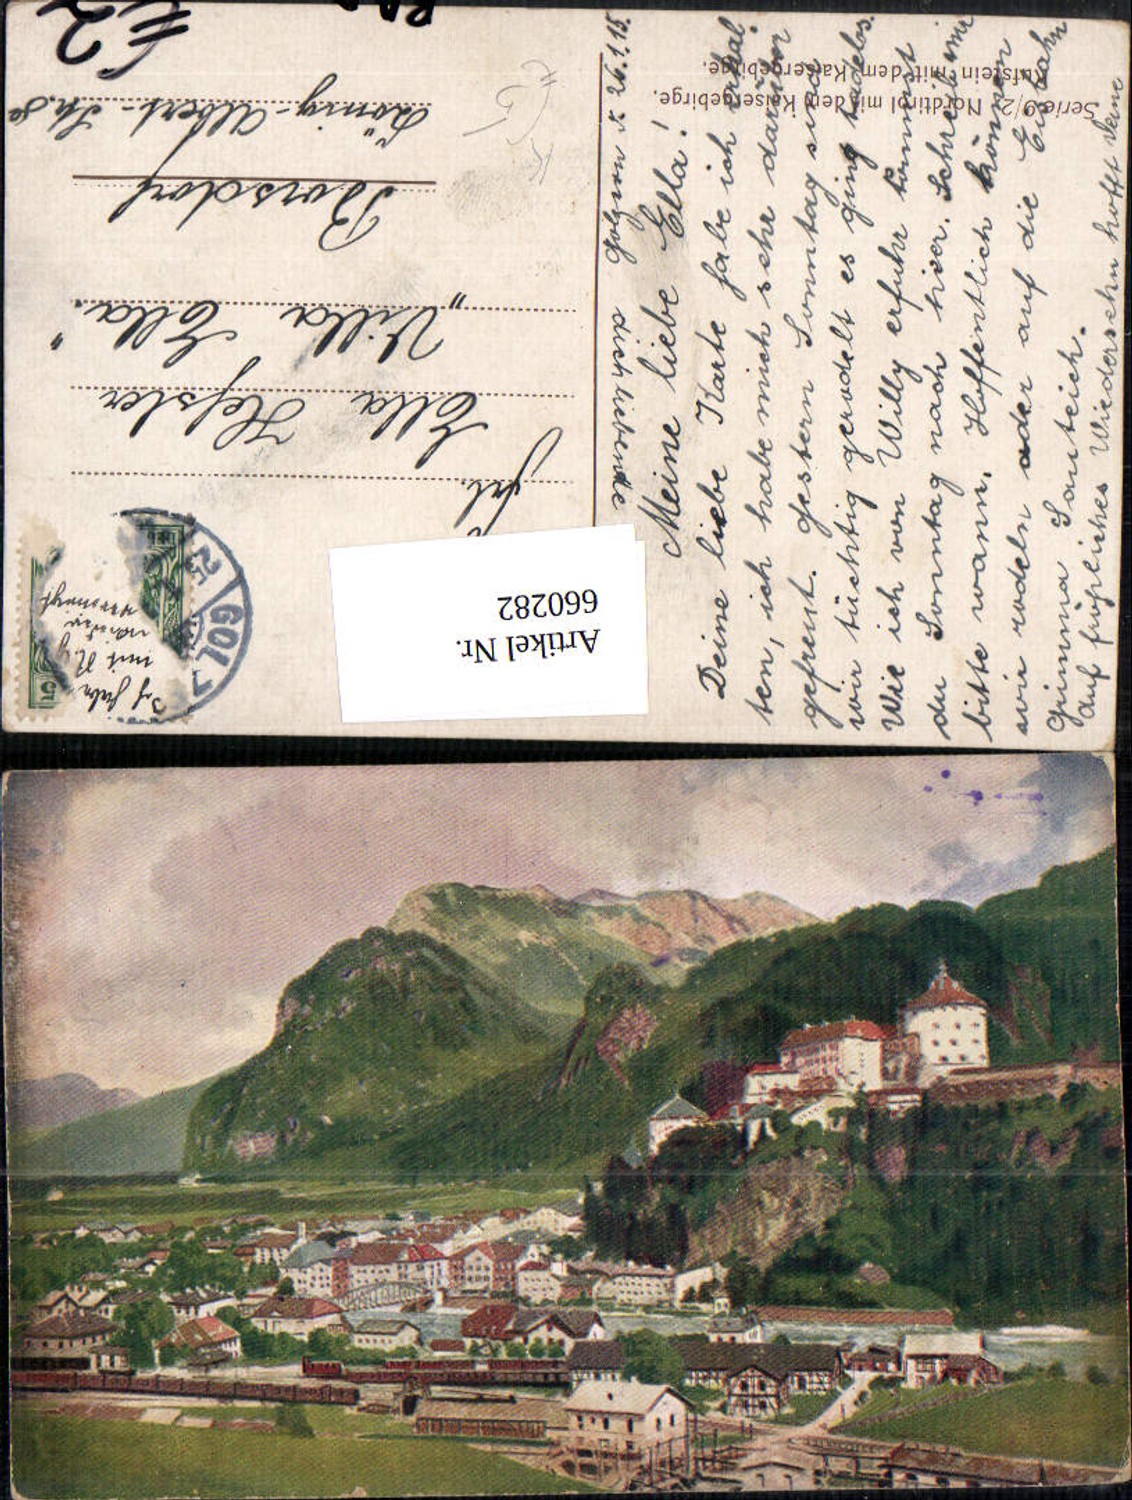 Golzern d. 26.1.15.
Meine liebe Ella!
Deine liebe Karte habe ich erhal
ten, ich habe mich sehr darüber
gefreut. Gestern Sonntag sind
wir tüchtig gerodelt es ging tadellos.
Wie ich von Willy erfuhr kommst
du Sonntag nach hier. Schreib mir
bitte wann. Hoffentlich können
wir rodeln oder auf die Eisbahn
Grimma Sauteich.
Auf fröhliches Wiedersehn hofft deine
dich liebende
Serie 9/2 Nordtirol mit dem Kaisergebirge.
Kufstein mit dem Kaisergebirge.
Frl.
Ella Hessler
„Villa Ella“
Borsdorf
König-Albert-
GOL
25
Artikel Nr.
660282